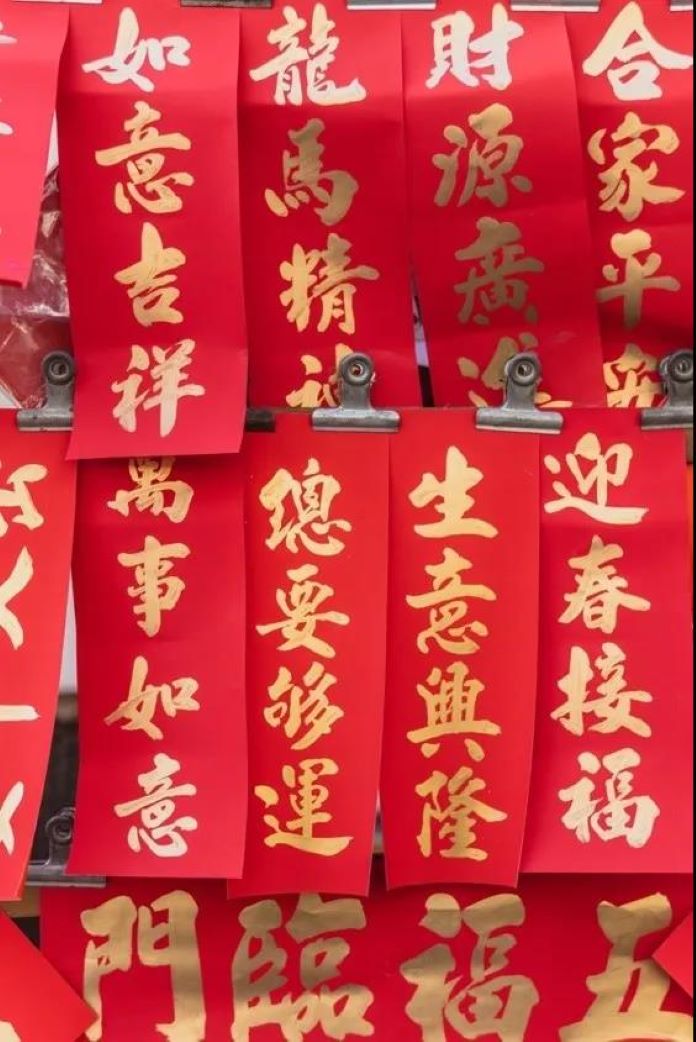 合家平安
財源廣進
龍馬精神
如意吉祥
迎春接福
生意興隆
總要够運
萬事如意
五福臨門